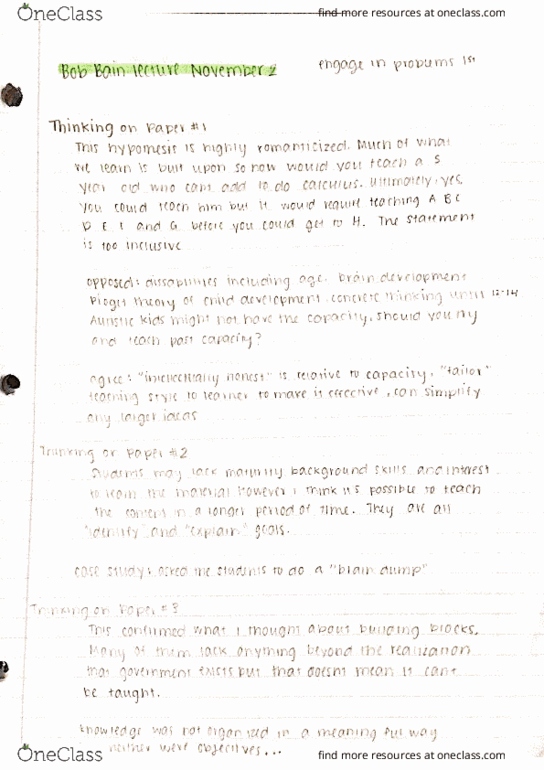 OneClass find more resources at oneclass.com
Bob Bain lecture November 2 engage in problems 1st
Thinking on Paper #1
This hypothesis is highly romanticized. Much of what
we learn is built upon so how would you teach a 5
year old who cant add to do calculus. Ultimately, yes,
you could teach him but it would require teaching A B C
D E F and G before you could get to H. The statement
is too inclusive
opposed: dissabilities including age, brain development
Piaget theory of child development, concrete thinking until 12-14
Autistic kids might not have the capacity, should you try
and teach past capacity?
agree: "intellectually honest" is relative to capacity, "tailor"
teaching style to learner to make it effective, can simplify
any larger ideas
Thinking on Paper #2
Students may lack maturity background skills and interest
to learn the material however i think its possible to teach
the content in a longer period of time. They are all
"identify" and "explain" goals.
case study: asked the students to do a "brain dump"
Thinking on Paper #3
This confirmed what I thought about building blocks.
Many of them lack anything beyond the realization
that government exists but that doesnt mean it cant
be taught.
knowledge was not organized in a meaning ful way
neither were objectives...
OneClass find more resources at oneclass.com